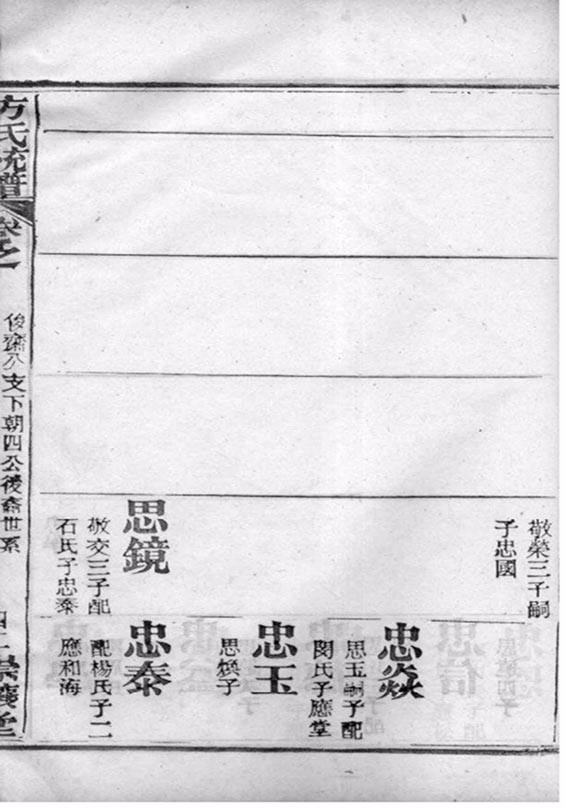 敬榮三子嗣
子忠國
思鏡
敬交三子配
石氏子忠泰
忠焱
思玉嗣子配
閔氏子應堂
忠玉
思煥子
忠泰
配楊氏子二
應和海
方氏統譜
卷之
俊齋公支下朝四公後裔世系
崇義堂